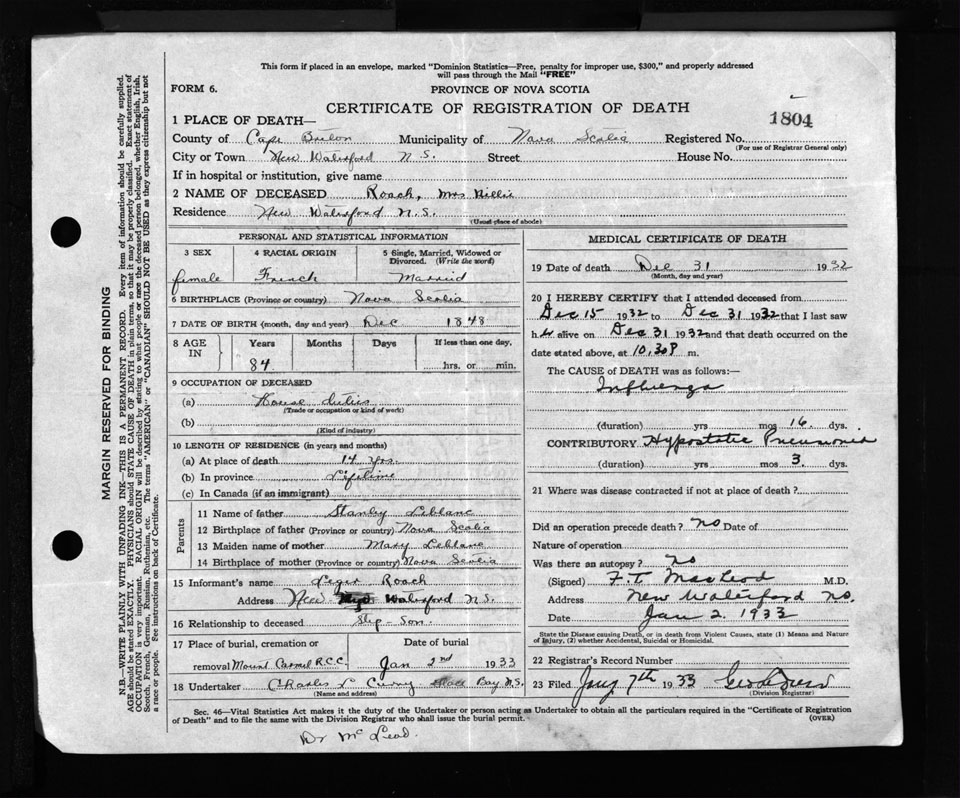 This form if placed in an envelope, marked "Dominion Statistics—Free, penalty for improper use, $300," and properly addressed
will pass through the Mail "FREE"
FORM 6. PROVINCE OF NOVA SCOTIA
CERTIFICATE OF REGISTRATION OF DEATH
1804
1 PLACE OF DEATH—
County of Cape Breton Municipality of Nova Scotia Registered No.
(For use of Registrar General only)
City or Town New Waterford N.S. Street House No.
If in hospital or institution, give name
2 NAME OF DECEASED Roach, Mrs
Residence New Waterford N.S.
(Usual place of abode)
PERSONAL AND STATISTICAL INFORMATION
3 SEX 4 RACIAL ORIGIN 5 Single, Married, Widowed or Divorced. (Write the word)
female French Married
6 BIRTHPLACE (Province or country) Nova Scotia
7 DATE OF BIRTH (month, day and year) Dec 1848
8 AGE IN Years Months Days If less than one day,
84 hrs. or min.
9 OCCUPATION OF DECEASED
(a) House duties
(Trade or occupation or kind of work)
(b)
(Kind of industry)
10 LENGTH OF RESIDENCE (in years and months)
(a) At place of death 14 yrs.
(b) In province Lifetime
(c) In Canada (if an immigrant)
Parents
11 Name of father Stanley Leblanc
12 Birthplace of father (Province or country) Nova Scotia
13 Maiden name of mother Mary Leblanc
14 Birthplace of mother (Province or country) Nova Scotia
15 Informant's name Leger Roach
Address New Waterford N.S.
16 Relationship to deceased Step-Son
17 Place of burial, cremation or removal Mount Carmel R.C.C. Date of burial Jan 2nd 1933
18 Undertaker Charles L Curry Glace Bay N.S.
(Name and address)
MEDICAL CERTIFICATE OF DEATH
19 Date of death Dec 31 1932
(Month, day and year)
20 I HEREBY CERTIFY that I attended deceased from
Dec 15 1932 to Dec 31 1932 that I last saw
her alive on Dec 31 1932 and that death occurred on
date stated above, at 10.30 P m.
The CAUSE of DEATH was as follows:—
Influenza
(duration) yrs mos 16 dys.
CONTRIBUTORY Hypostatic Pneumonia
(duration) yrs mos 3 dys.
21 Where was disease contracted if not at place of death?
Did an operation precede death? no Date of
Nature of operation
Was there an autopsy? no
(Signed) F.T. MacLeod M.D.
Address New Waterford N.S.
Date Jan 2. 1933
State the Disease causing Death, or in death from Violent Causes, state (1) Means and Nature
of Injury, (2) whether Accidental, Suicidal or Homicidal.
22 Registrar's Record Number
23 Filed Jany 7th 1933
(Division Registrar)
Sec. 46—Vital Statistics Act makes it the duty of the Undertaker or person acting as Undertaker to obtain all the particulars required in the "Certificate of Registration
of Death" and to file the same with the Division Registrar who shall issue the burial permit. (OVER)
Dr McLeod.
MARGIN RESERVED FOR BINDING
N.B.—WRITE PLAINLY WITH UNFADING INK—THIS IS A PERMANENT RECORD. Every item of information should be carefully supplied.
AGE should be stated EXACTLY. PHYSICIANS should STATE CAUSE OF DEATH in plain terms, so that it may be properly classified. Exact statement of
OCCUPATION is very important. RACIAL ORIGIN will be described by stating to what people or race the deceased person belonged, whether English, Irish,
Scotch, French, German, Russian, Ruthenian, etc. The terms "AMERICAN" or "CANADIAN" SHOULD NOT BE USED as they express citizenship but not
a race or people. See instructions on back of Certificate.